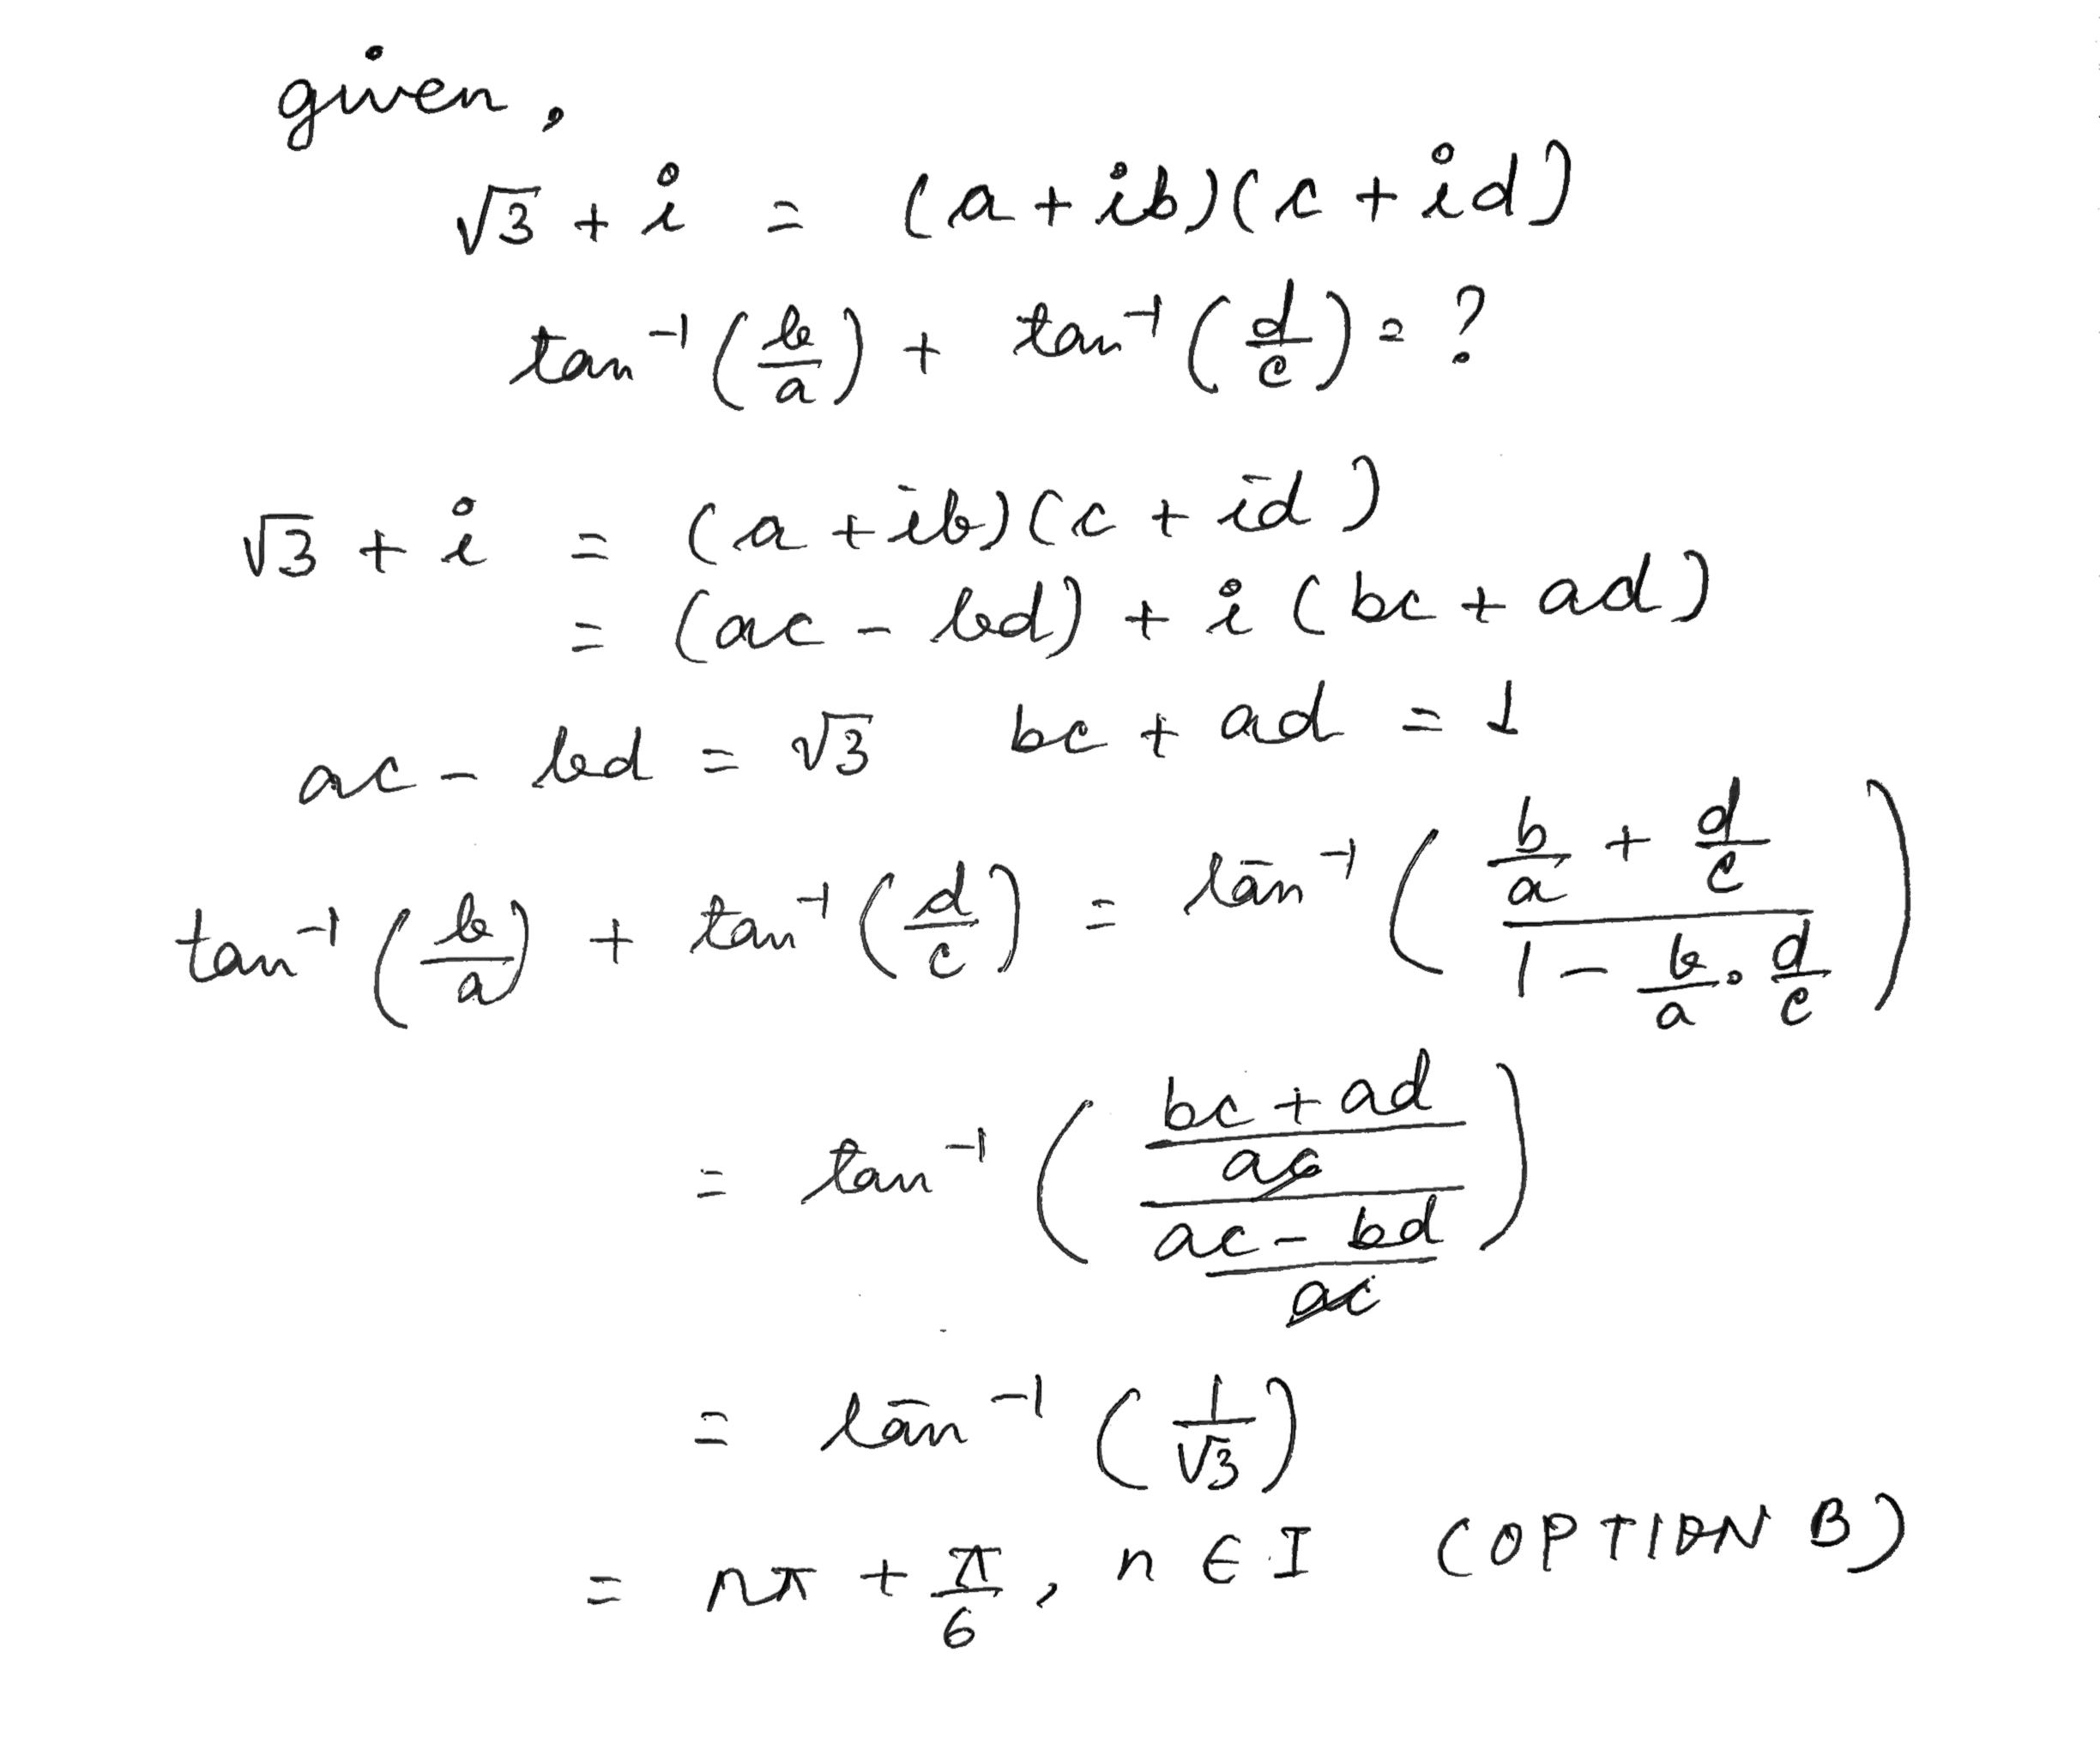 given,
√3 + i = (a + ib)(c + id)
tan⁻¹(b/a) + tan⁻¹(d/c) = ?
√3 + i = (a + ib)(c + id)
= (ac - bd) + i(bc + ad)
ac - bd = √3 bc + ad = 1
tan⁻¹(b/a) + tan⁻¹(d/c) = tan⁻¹((b/a + d/c)/(1 - b/a · d/c))
= tan⁻¹(((bc + ad)/ac)/((ac - bd)/ac))
= tan⁻¹(1/√3)
= nπ + π/6, n ∈ I (OPTION B)